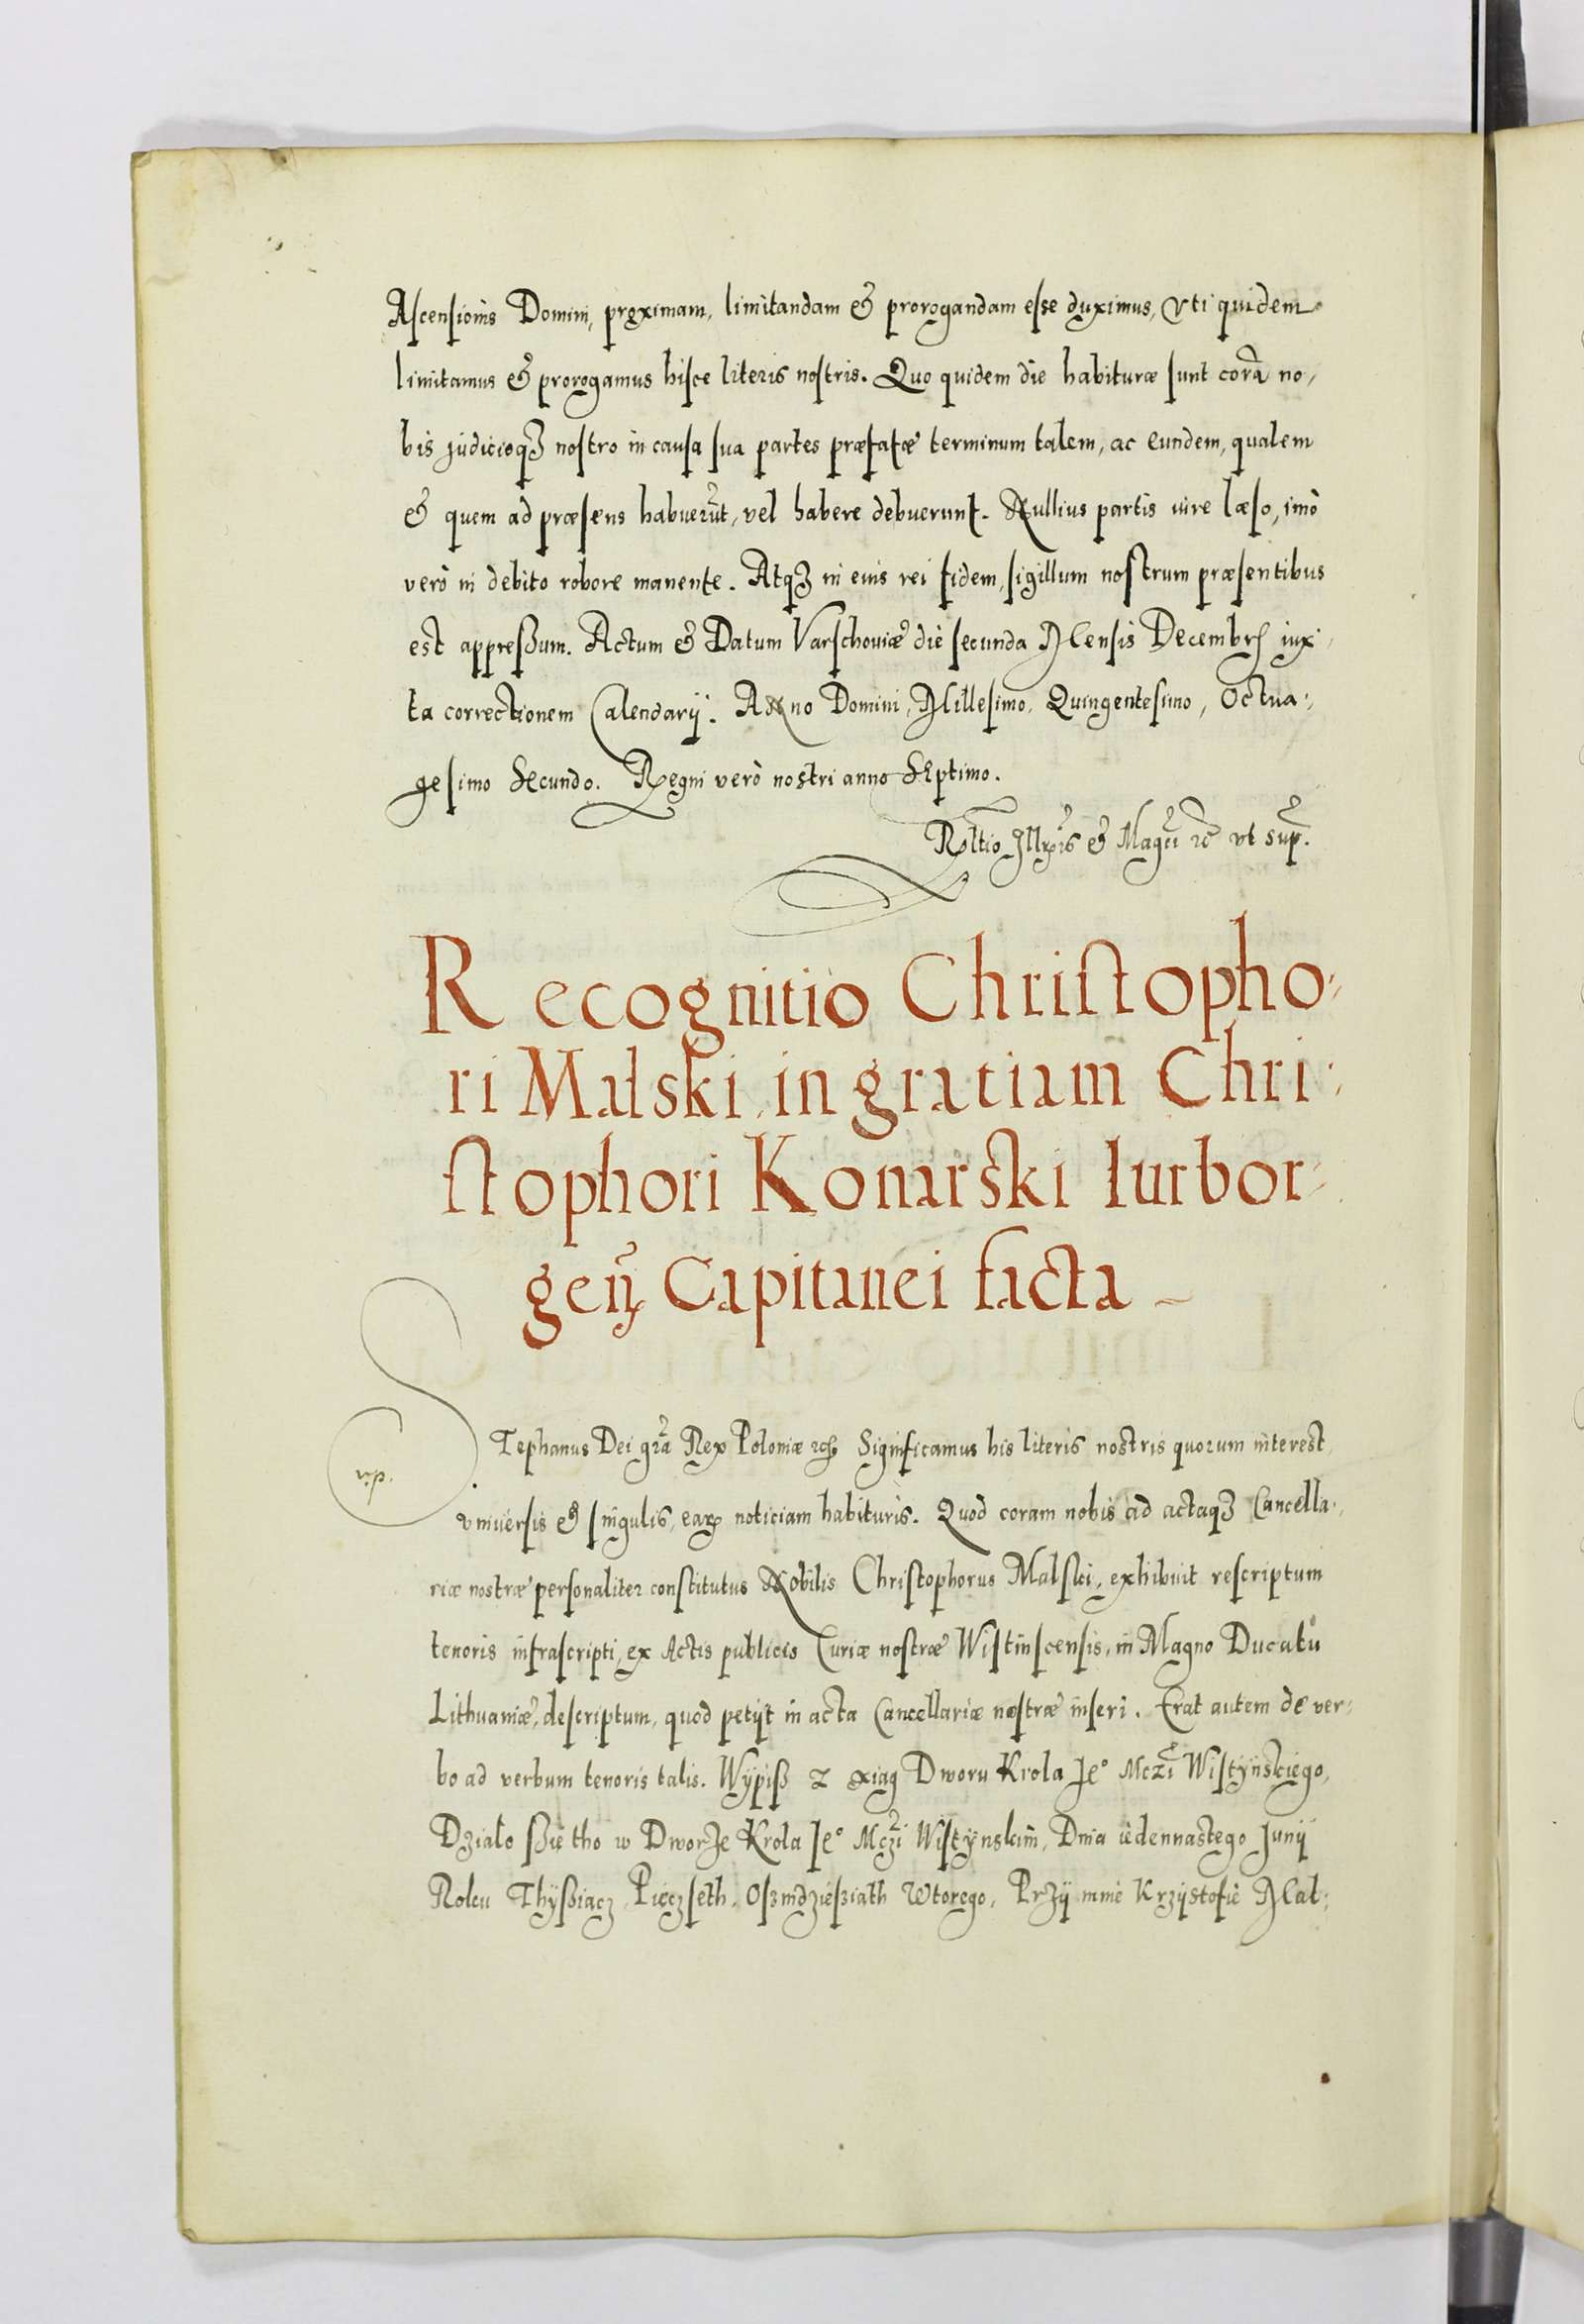 Ascensionis Domini, proximam, limitandam & prorogandam esse duximus, Vti quidem
limitamus & prorogamus hisce literis nostris. Quo quidem die habituræ sunt corã no,
bis judicioqꝫ nostro in causa sua partes præfatæ terminum talem, ac eundem, qualem
& quem ad præsens habuerũt, vel habere debuerunt. Nullius partis iure læso, imò
verò in debito robore manente. Atqꝫ in eius rei fidem, sigillum nostrum præsentibus
est appreßum. Actum & Datum Varschouiæ die secunda Mensis Decembrꝭ iux,
ta correctionem Calendarij. Anno Domini, Millesimo, Quingentesimo, Octua,
gesimo Secundo. Regni verò nostri anno Septimo.
Rltio Illris & Magci ꝛc vt sup.
Recognitio Christopho,
ri Malski, in gratiam Chri,
stophori Konarski Iurbor,
geñ Capitanei facta
Stephanus Dei grã Rex Poloniæ ꝛc Significamus his literis nostris quorum interest,
vip.
vniuersis & singulis, eaꝝ noticiam habituris. Quod coram nobis ad actaqꝫ Cancella,
riæ nostræ personaliter constitutus Nobilis Christophorus Malski, exhibuit rescriptum
tenoris infrascripti, ex Actis publicis Curiæ nostræ Wistinscensis, in Magno Ducatu
Lithuaniæ, descriptum, quod petijt in acta Cancellariæ nostræ inseri. Erat autem de ver,
bo ad verbum tenoris talis. Wypiß z xiąg Dworu Krola Je° Mczi Wistynskiego,
Działo ßie tho w Dworze Krola Je° Mczi Wistynskim, Dnia iedennastego Junij
Roku Thyßiącz Pięczseth, Oßmdzießiath Wtorego, Przy mnie Krzysztofie Mal,